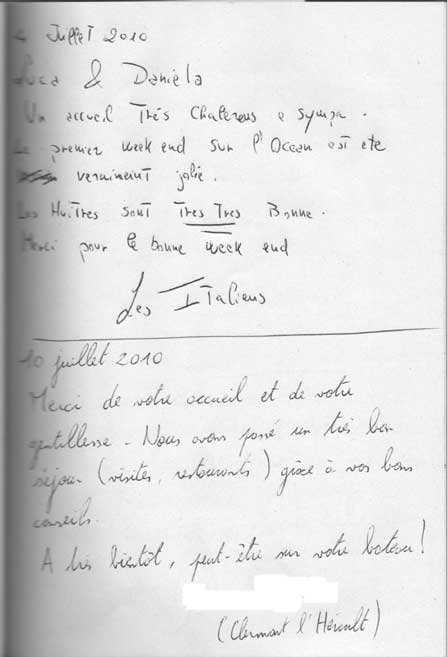 4 Juillet 2010
Luca & Daniela
Un accueil Très Chalereus e sympa.
Le premier week end sur l'Ocean est ete
veraiment jolie.
Les Huitres sont Tres Tres Bonne.
Merci pour le bonne week end
Les Italiens
10 juillet 2010
Merci de votre accueil et de votre
gentillesse - Nous avons passé un très bon
séjour (visites, restaurants) grâce à vos bons
conseils.
A très bientôt, peut-être sur votre bateau!
(Clermont l'Hérault)